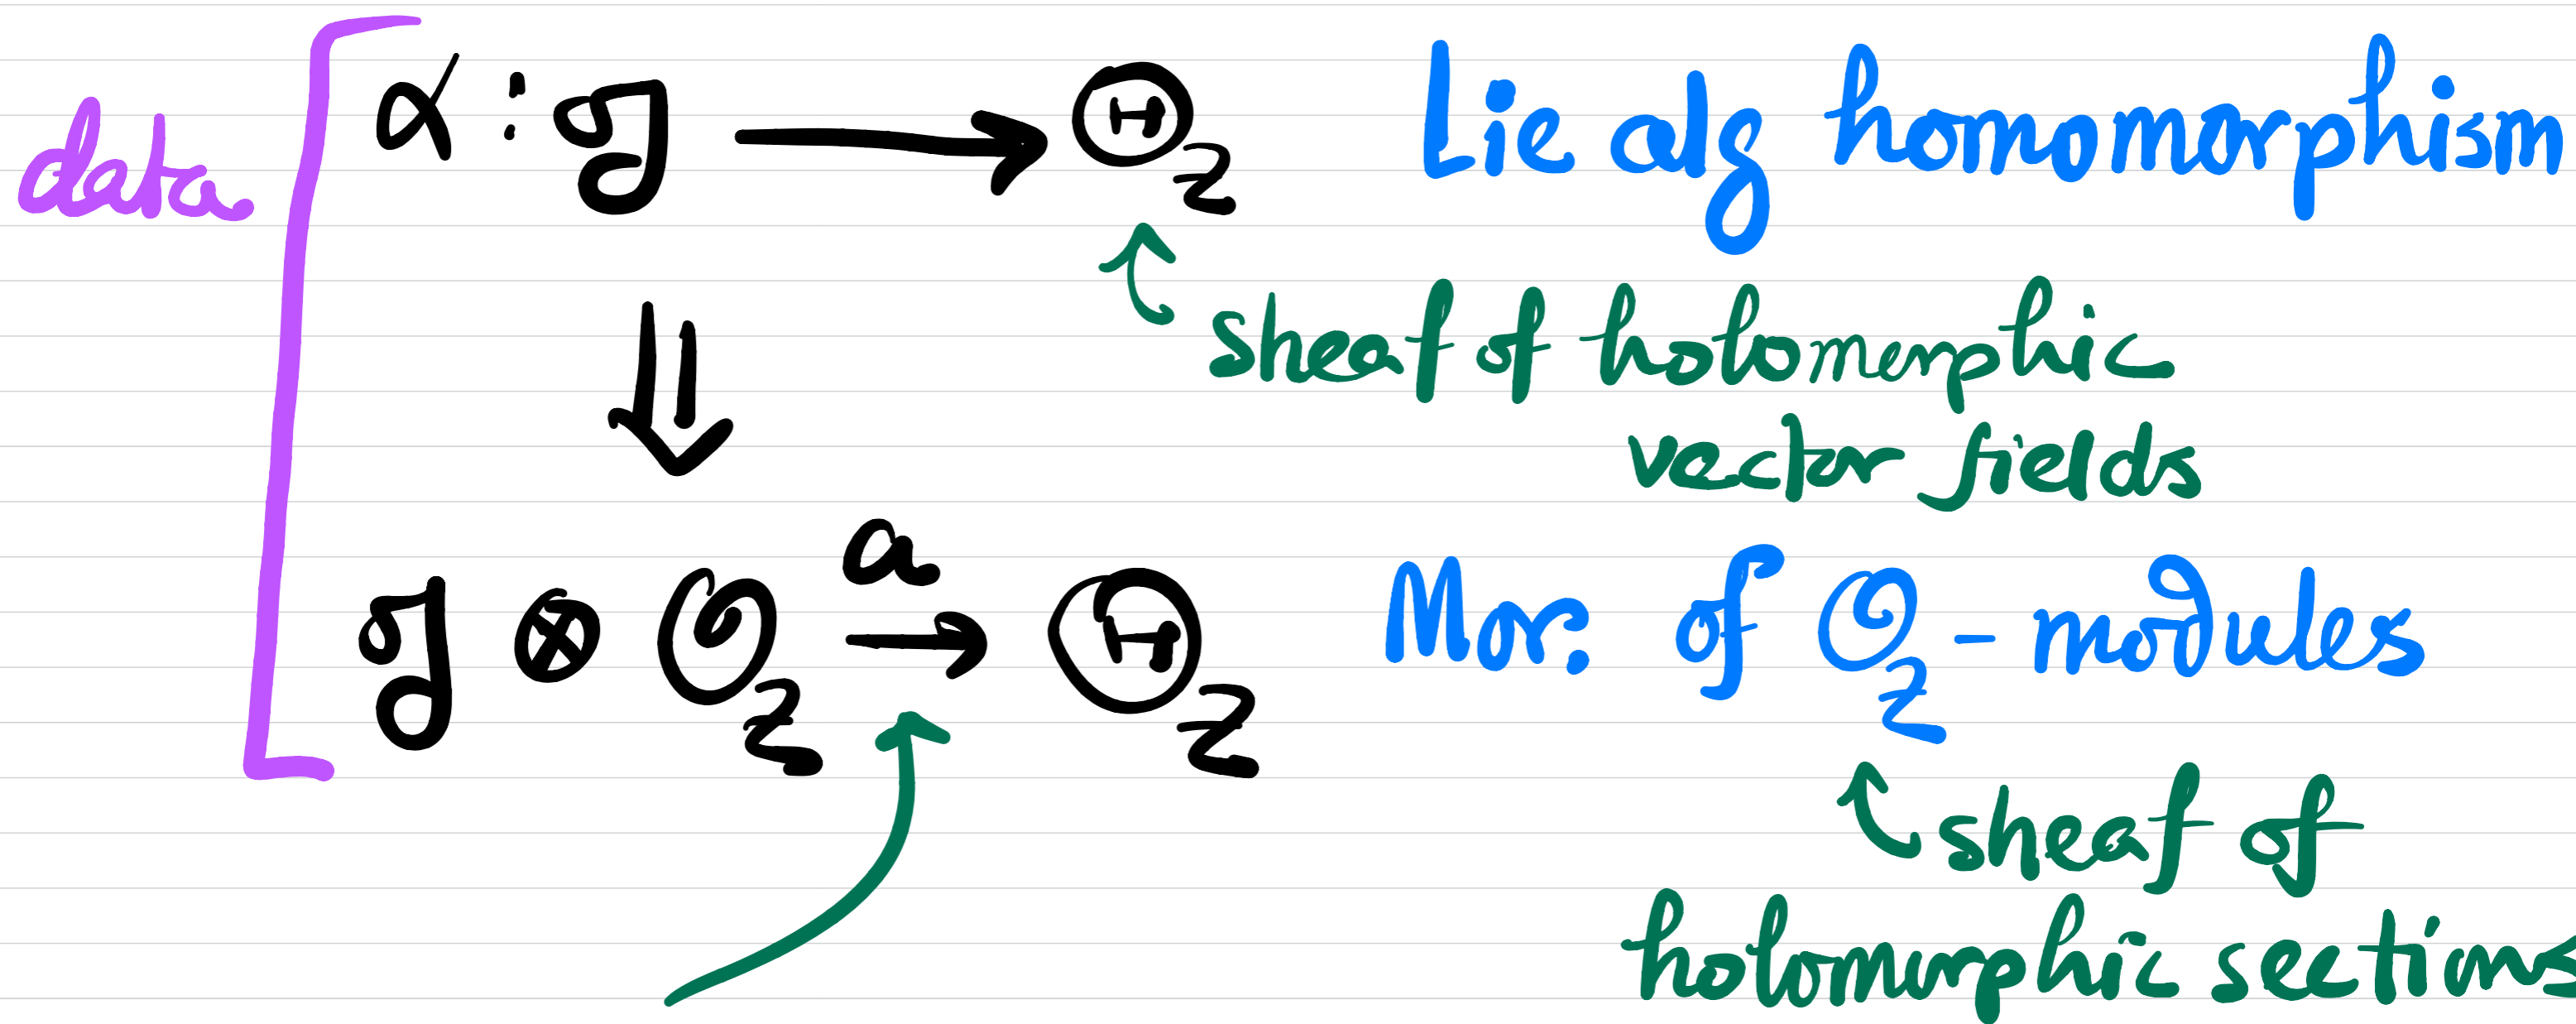 data
α : 𝔤 ⟶ Θ_Z Lie alg homomorphism
sheaf of holomorphic
vector fields
⇓
a
𝔤 ⊗ 𝒪_Z → Θ_Z Mor. of 𝒪_Z - modules
sheaf of
holomorphic sections